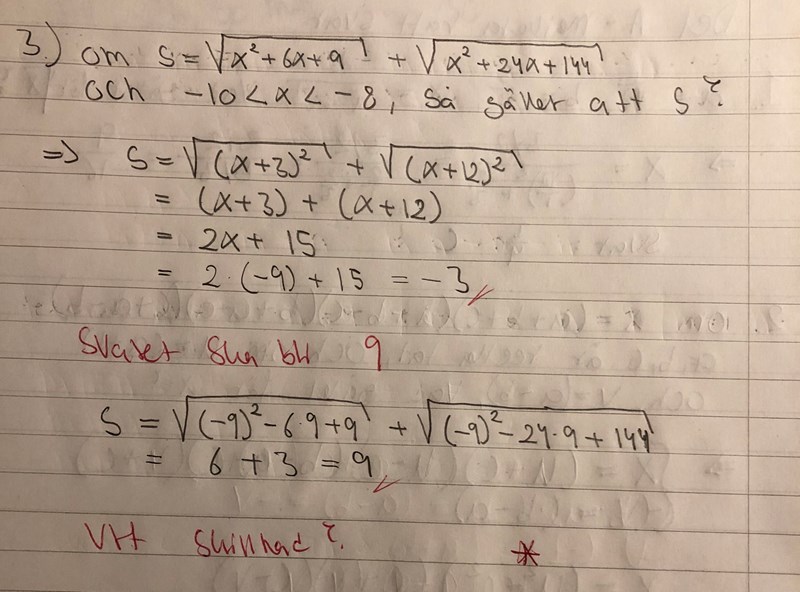 3.) om S = √(x² + 6x + 9) + √(x² + 24x + 144)
och -10 < x < -8, så gäller att S?
=> S = √((x+3)²) + √((x+12)²)
= (x+3) + (x+12)
= 2x + 15
= 2·(-9) + 15 = -3
Svaret ska bli 9
S = √((-9)² - 6·9 + 9) + √((-9)² - 24·9 + 144)
= 6 + 3 = 9
skillnad?
*